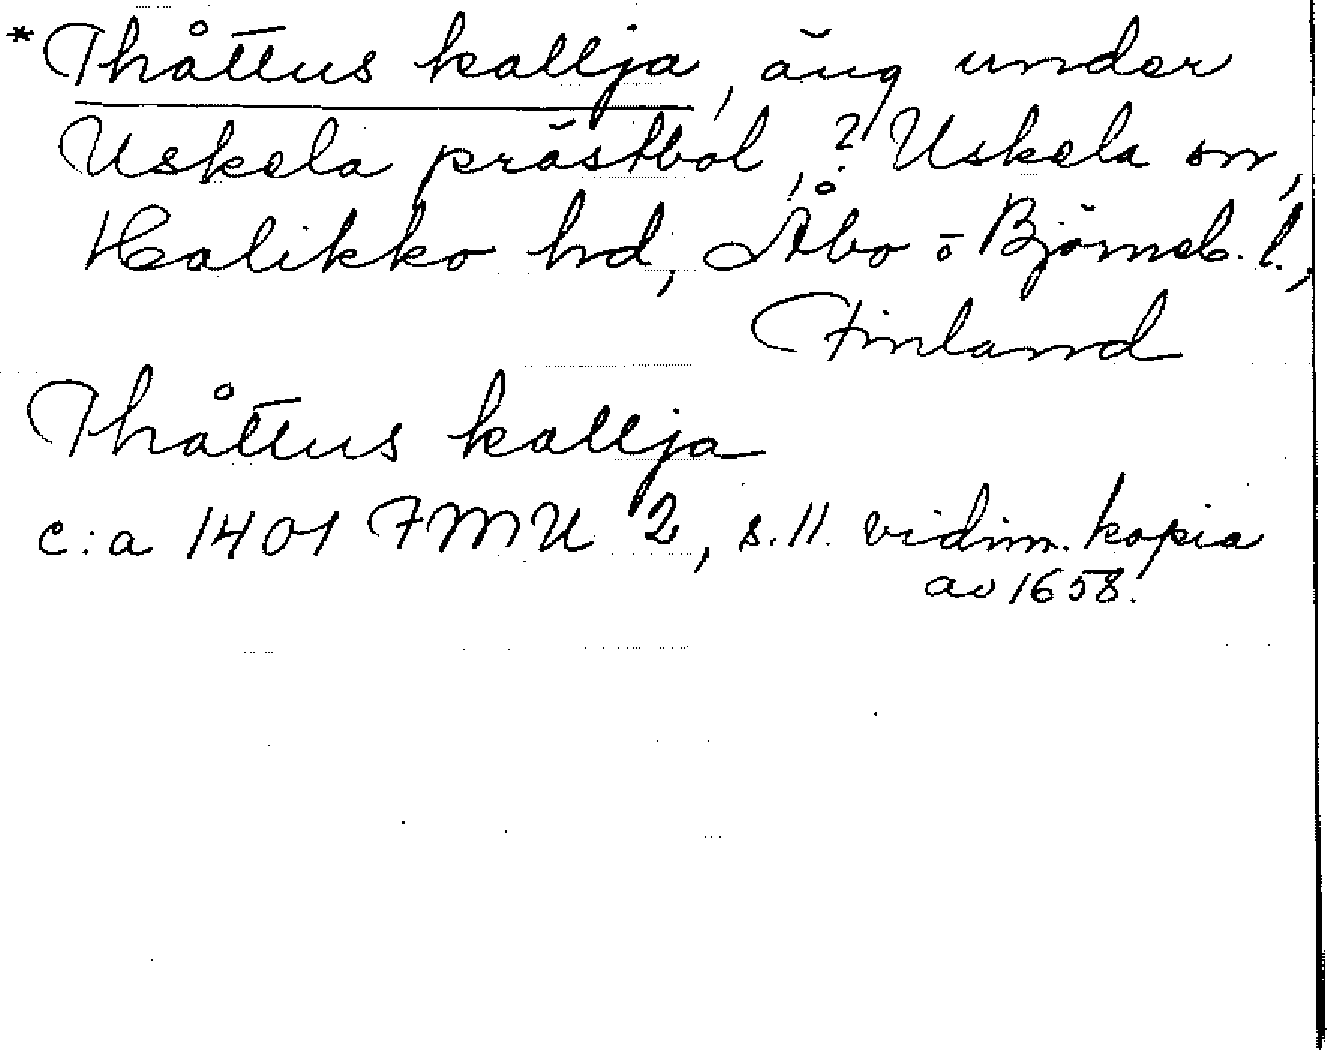 *Thåttus kallja, äng under
Uskela prästbol, ? Uskela sn,
Halikko hd, Åbo o Björneb. l.,
Finland
Thåttus kallja
c:a 1401 FMU 2, s. 11. vidim. kopia
av 1658.